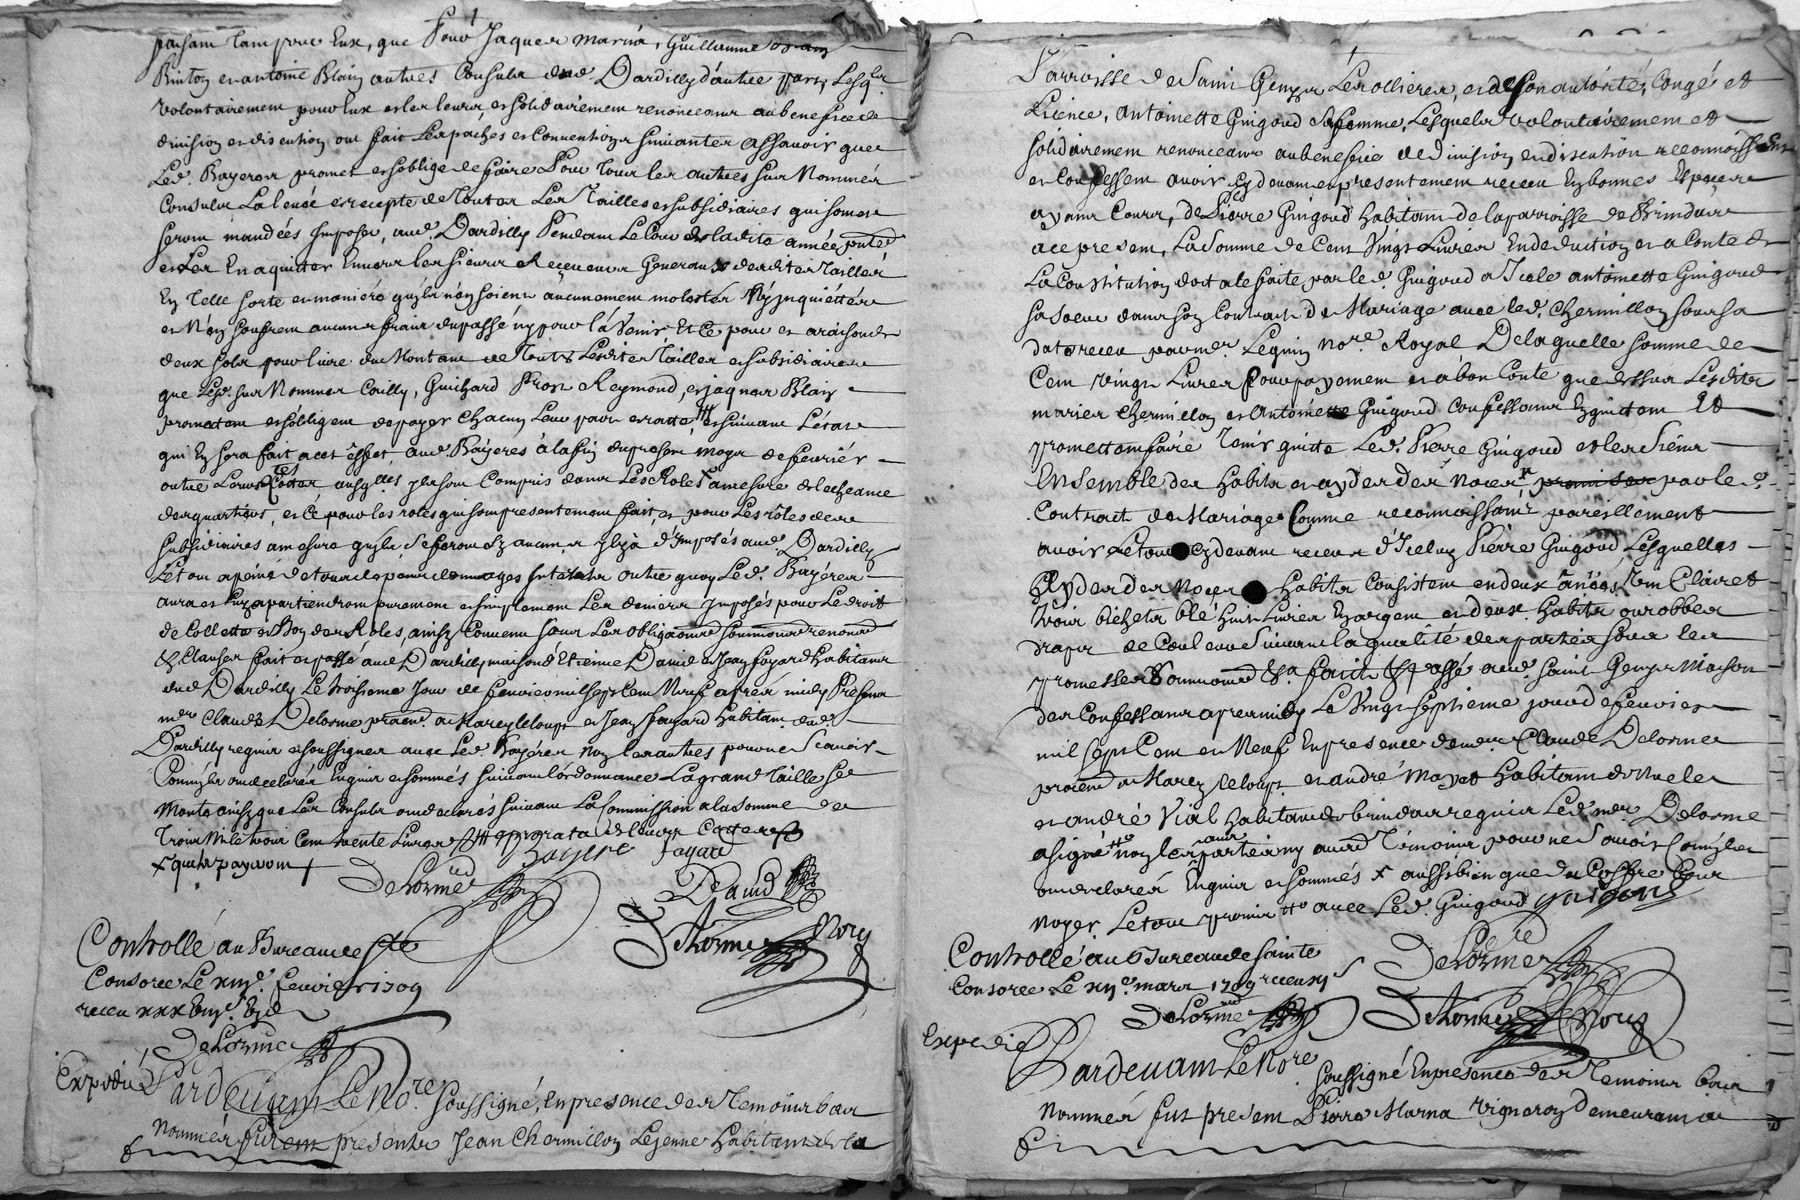 paisam tam pour Eux, que Pour Jaques Marnà, Guillaume
Binton et antoine Blain autres Consulz dud. Dardilly d'autre part, Lesqls
volontairement pour Eux et les leurs, et solidairement renonceans au benefice de
division et discution ont fait Les paches et Conventions suivantes Assavoir que
Led. Bayeres promet et s'oblige de faire Pour tous les autres sus Nommés
Consulz La levée et recepte de Toutes Les Tailles et subsidiaires qui sont et
seront mandées Imposer, aud. Dardilly Pendant Le Cours de ladite année pnte
et Les En aquitter Envers les sieurs Receveurs Generaux desdites Tailles
En Telle sorte et maniere quils n'en soient aucunement molestés Ny Inquiettés
et N'en soufrent aucuns frais du passé ny pour l'avenir Et Ce pour et a raison de
deux solz pour livre du Montant de Toutes Lesdites Tailles et subsidiaires
que Lesd. sus Nommes Cailly, Guichard Pron Reymond, et jaques Blain
promettent et s'obligent de payer Chacun Leur part et ratte, et suivant L'etat
qui En sera fait a cet effet aud. Bayeres à la fin du present mois de fevrier
outre Leurs Cottes ausqlles ils sont Compris dans Les Roles a mesure de l'echeance
des quartiers, et Ce pour les roles qui sont presentement fait, et pour Les rôles des
subsidiaires a mesure quils se feront Sy aucuns a d'Imposés aud. Dardilly
Le tout a peine de tous depens domages Interests outre quoy Led. Bayeres
aura et luy apartiendront purement et simplement Les deniers Imposés pour Le droit
de Collette et Boy des Roles, ainsy Convenu sous Les obligations soumissions renond.
& Clauses fait et passé aud. Dardilly maison d'Etienne David et Jean fayard habitans
dud. Dardilly Le troisieme Jour de fevrier mil sept Cent Neuf apres midy Presens
mre Claude Delorme praticn. a Marcy le loup et Jean fayard habitant dud.
Dardilly requis et soussignes avec Led. Bayeres Non les autres pour ne scavoir
Comme ils ont declarés Enquis et sommés suivant l'ordonnance La grand Taille se
Monte ainsy que Les Consulz ont declarés suivant La Commission a la somme de
Trois Mil trois Cent trente Livres au prorata de leurs Cottes
x quils payeront
Bayere fayard
Delorme David
Delorme Nore
Controllé au Bureau de Ste
Consorce Le xiiie. fevrier 1709
receu
Delorme
Expedié Pardevant Le Nore. soussigné, En presence des Temoins bas
nommés furent presents Jean Chermillon Lejeune habitant de la
Parroisse de Saint Genys Les ollieres, et de son autorité, Congé et
Licence, Antoinette Guigoud sa femme, Lesquels volontairement et
solidairement renonceans au benefice de division et discution reconnoissent
et Confessent avoir Cy devant et presentement receu En bonnes Especes
ayant Cours, de Pierre Guigoud habitant de la parroisse de Brindas
ace present, La somme de Cent Vingt Livres En deduction et a Conte de
La Constitution dotale faite par led. Guigoud a Icelle antoinette Guigoud
sa soeur dans son Contract de Mariage avec led. Chermillon sous sa
date receu par mre. Leguin Nore Royal De laquelle somme de
Cent vingt Livres pour payement et à bon Conte que dessus Lesdits
mariés Chermillon et Antoinette Guigoud Confessants En quittent Et
promettent faire Tenir quitte Led. Pierre Guigoud et les siens
Ensemble des habits et aydes des Noces promises par led.
Contract de Mariage Comme reconnoissants pareillement
avoir Le tout Cy devant receu d'Iceluy Pierre Guigoud Lesquelles
Aydes des Noces habits Consistent en deux Clairet
Trois bichets blé huit Livres En argent et deux habits ou robbes
drapt de Couleur suivant la qualité des parties sous les
promesses soumissions &a. fait & passé aud. saint Genys Maison
des Confessants apres midy Le Vingt septieme jour de fevrier
mil sept Cent et Neuf En presence de mre. Claude Delorme
praticn a Marcy le loup et andré Mayet habitant de
et andré Vial habitant de brindas requis Led. mre Delorme
a signé non les parties ny autre Témoins pour ne savoir Comme ils
ont declarés Enquis et sommés x aussi bien que du Coffre bois
noyer Le tout promis avec Led. Guigoud guigoud
Controllé au Bureau de sainte
Consorce Le xiie. mars 1709 receu
Delorme
Delorme
Delorme Nore
Expedié
Pardevant Le Nore. soussigné En presence des Temoins bas
Nommés fut present Pierre Marna vigneron demeurant a